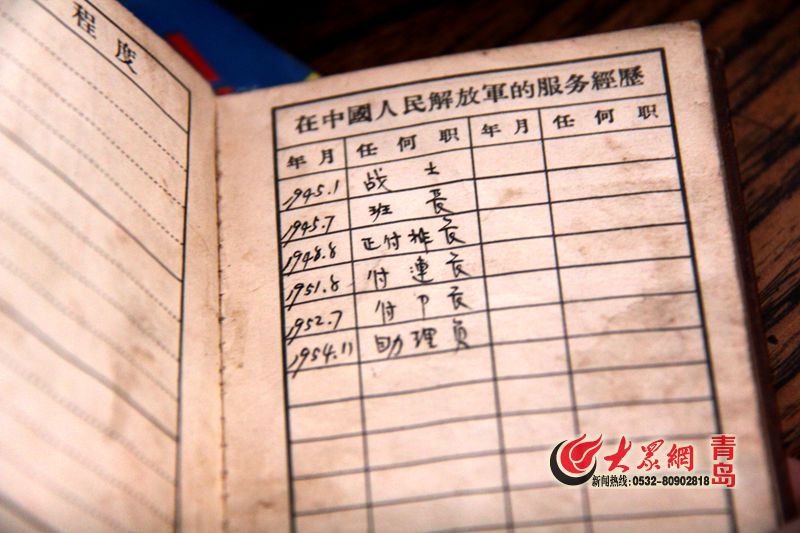 程度
在中國人民解放軍的服务經歷
年月 任何职 年月 任何职
1945.1 战士
1945.7 班長
1948.8 正付排長
1951.8 付連長
1952.7 付P長
1954.11 助理员
大眾網 青岛
新闻热线:0532-80902818